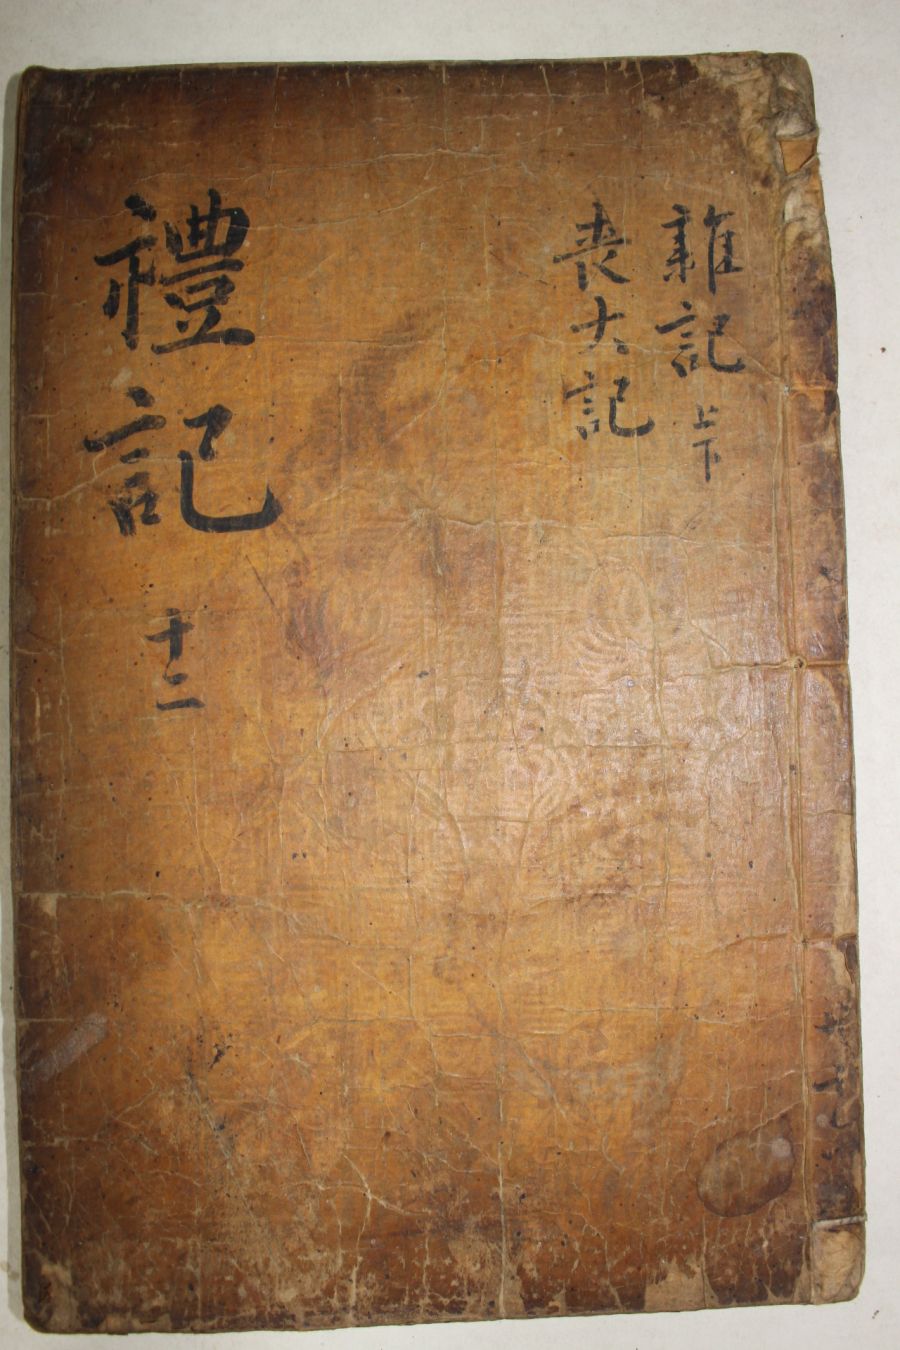 雜記 上下
喪大記
禮記 十二